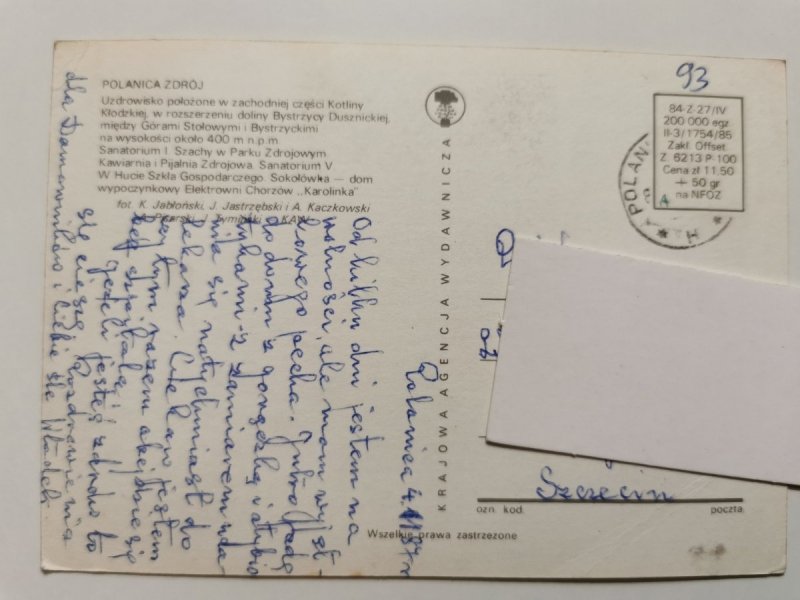 POLANICA ZDRÓJ
Uzdrowisko położone w zachodniej części Kotliny
Kłodzkiej, w rozszerzeniu doliny Bystrzycy Dusznickiej,
między Górami Stołowymi i Bystrzyckimi
na wysokości około 400 m n.p.m.
Sanatorium I. Szachy w Parku Zdrojowym
Kawiarnia i Pijalnia Zdrojowa. Sanatorium V
W Hucie Szkła Gospodarczego. Sokołówka — dom
wypoczynkowy Elektrowni Chorzów „Karolinka"
fot. K. Jabłoński, J. Jastrzębski i A. Kaczkowski
A. Pisarski, J. Tymiński — KAW
KRAJOWA AGENCJA WYDAWNICZA
93
84-Z-27/IV
200 000 egz.
II-3/1754/85
Zakł. Offset.
Z. 6213 P-100
Cena zł 11,50
+ 50 gr
na NFOZ
A
POLAN
Polanica 4.
Od kilku dni jestem na
wolności, ale mam wyjąt-
kowego pecha. Jutro jadę
do domu z gorączką i
z zamiarem uda-
nia się natychmiast do
lekarza. Ciekaw jestem
czy tym razem obejdzie się
bez szpitala.
Jeżeli jesteś zdrowa to
się cieszę. Pozdrowienia
dla Damowników i Ciebie śle Władek
Szczecin
ozn. kod
poczta
Wszelkie prawa zastrzeżone